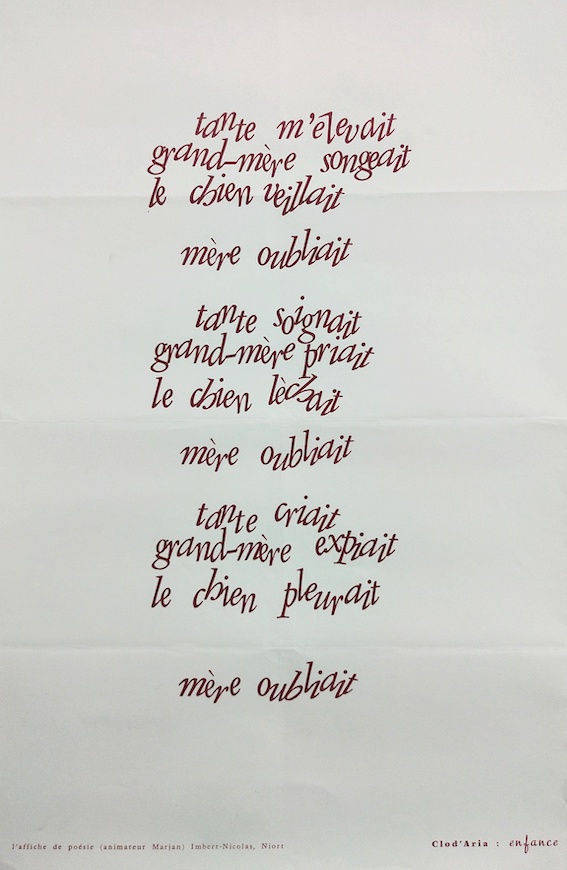 tante m'élevait
grand-mère songeait
le chien veillait
mère oubliait
tante soignait
grand-mère priait
le chien lèchait
mère oubliait
tante criait
grand-mère expiait
le chien pleurait
mère oubliait
l'affiche de poésie (animateur Marjan) Imbert-Nicolas, Niort
Clod'Aria : enfance